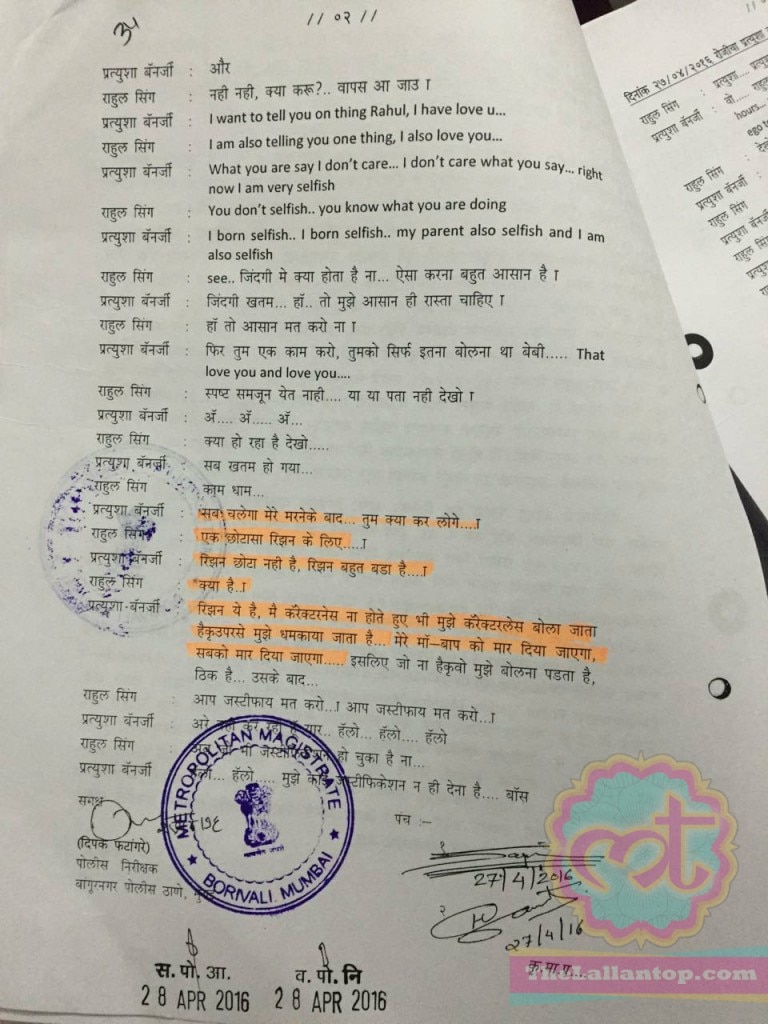 // ०२ //
प्रत्युशा बॅनर्जी : और
राहुल सिंग : नही नही, क्या करू?.. वापस आ जाउ ।
प्रत्युशा बॅनर्जी : I want to tell you on thing Rahul, I have love u...
राहुल सिंग : I am also telling you one thing, I also love you...
प्रत्युशा बॅनर्जी : What you are say I don't care... I don't care what you say... right
now I am very selfish
राहुल सिंग : You don't selfish.. you know what you are doing
प्रत्युशा बॅनर्जी : I born selfish.. I born selfish.. my parent also selfish and I am
also selfish
राहुल सिंग : see.. जिंदगी मे क्या होता है ना... ऐसा करना बहुत आसान है ।
प्रत्युशा बॅनर्जी : जिंदगी खतम... हॉ.. तो मुझे आसान ही रास्ता चाहिए ।
राहुल सिंग : हॉ तो आसान मत करो ना ।
प्रत्युशा बॅनर्जी : फिर तुम एक काम करो, तुमको सिर्फ इतना बोलना था बेबी..... That
love you and love you....
राहुल सिंग : स्पष्ट समजून येत नाही.... या या पता नही देखो ।
प्रत्युशा बॅनर्जी : ॲ.... ॲ..... ॲ...
राहुल सिंग : क्या हो रहा है देखो.....
प्रत्युशा बॅनर्जी : सब खतम हो गया...
राहुल सिंग : काम धाम...
प्रत्युशा बॅनर्जी : सब चलेगा मेरे मरनेके बाद... तुम क्या कर लोगे....।
राहुल सिंग : एक छोटासा रिझन के लिए.....।
प्रत्युशा बॅनर्जी : रिझन छोटा नही है, रिझन बहुत बडा है....।
राहुल सिंग : क्या है..।
प्रत्युशा बॅनर्जी : रिझन ये है, मै कॅरेक्टरनेस ना होते हुए भी मुझे कॅरेक्टरलेस बोला जाता
हैकृउपरसे मुझे धमकाया जाता है... मेरे मॉ-बाप को मार दिया जाएगा,
सबको मार दिया जाएगा..... इसलिए जो ना हैकृवो मुझे बोलना पडता है,
ठिक है... उसके बाद...
राहुल सिंग : आप जस्टीफाय मत करो...। आप जस्टीफाय मत करो...।
प्रत्युशा बॅनर्जी : अरे नही कर रही हूँ यार... हॅलो... हॅलो.... हॅलो
राहुल सिंग : जो भी जस्टीफिकेशन हो चुका है ना...
प्रत्युशा बॅनर्जी : हॅलो... हॅलो..... मुझे कोई जस्टीफिकेशन न ही देना है.... बॉस
समक्ष
पंच :-
(दिपक फटांगरे)
पोलीस निरीक्षक
बांगुरनगर पोलीस ठाणे, मुंबई
METROPOLITAN MAGISTRATE
BORIVALI, MUMBAI
27/4/2016
२
२७/4/16
क.मा.ग...
स. पो. आ.
व. पो. नि
28 APR 2016
28 APR 2016
दिनांक २७/०४/२०१६ रोजीचा प्रत्युशा
राहुल सिंग : प्रत्युशा.... प्रत्यु
प्रत्युशा बॅनर्जी : वो..... राहु
hours...
ego t
राहुल सिंग : देखो
प्रत्युशा बॅनर्जी :
राहुल सिंग
प्रत्युशा बॅनर्जी
राहुल सिंग
mt
TheLallantop.com